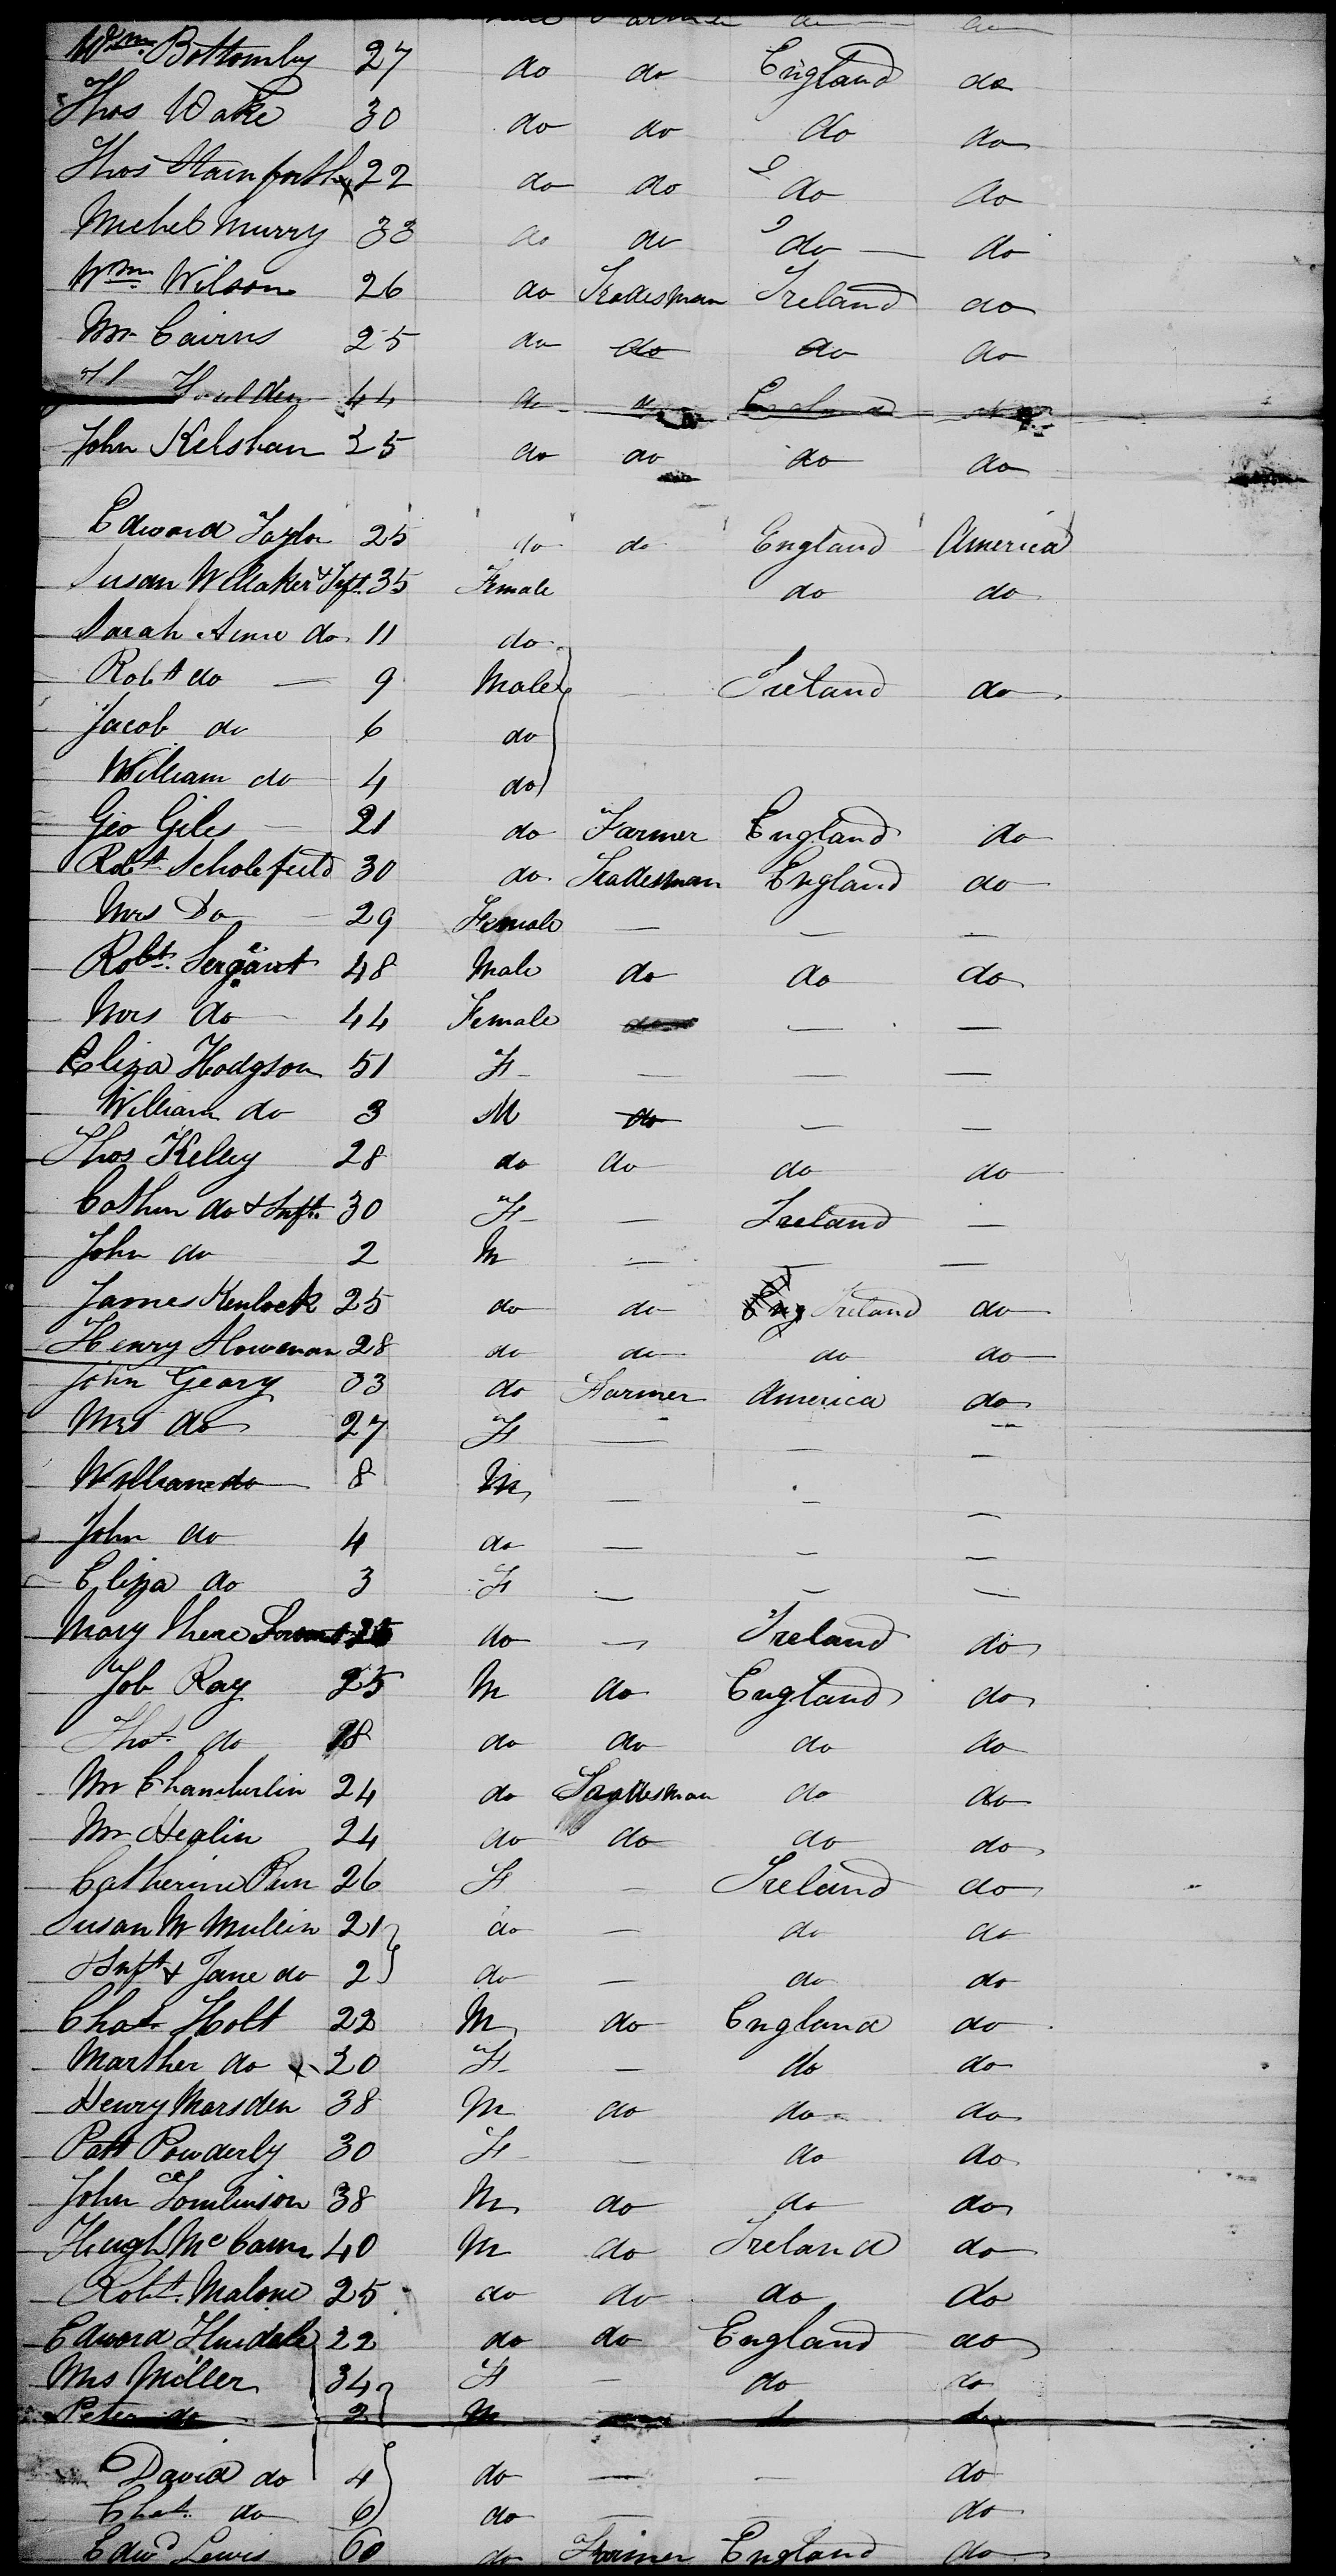 Farmer do do
Wm Bottomley 27 do do England do
Thos Wake 30 do do do do
Thos Stainforth 22 do do do do
Michel Murry 33 do do do do
Wm Wilson 26 do Tradesman Ireland do
Mr Cairns 25 do do do do
Houlden 44 do do England do
John Kelshan 35 do do do do
Edward Taylor 25 do do England America
Susan Wellaker & Inft. 35 Female do do
Sarah Anne do 11 do
Robt do 9 Male Ireland do
Jacob do 6 do
William do 4 do
Geo Giles 21 do Farmer England do
Robt Scholefield 30 do Tradesman England do
Mrs Do 29 Female — — —
Robt. Sergant 48 Male do do do
Mrs do 44 Female — —
Eliza Hodgson 51 F — — —
William do 3 M do — —
Thos Kelley 28 do do do do
Cathrn do & Inft. 30 F — Ireland —
John do 2 M — — —
James Kenlock 25 do do Ireland do
Henry Howeman 28 do do do do
John Geary 33 do Farmer America do
Mrs do 27 F — — —
William do 8 M — — —
John do 4 do — — —
Eliza do 3 F — — —
Mary Shene do — Ireland do
Job Ray 25 M do England do
Thos. do 18 do do do do
Mr Chamberlin 24 do Tradesman do do
Mr Healin 24 do do do do
Catherine 26 F — Ireland do
Susan Mc Mullin 21 do — do do
& Inft & Jane do 2 do — do do
Chas Holt 22 M do England do
Marther do 20 F — do do
Henry Marsden 38 M do do do
Patt Powderly 30 F — do do
John Tomlinson 38 M do do do
Hugh Mc Cann 40 M do Ireland do
Robt. Malone 25 do do do do
Edward Hindele 22 do do England do
Mrs Miller 34 F — do do
Peter do 2 M do do
David do 4 do — — do
Chas. do 6 do — — do
Edwd Lewis 60 do Farmer England do